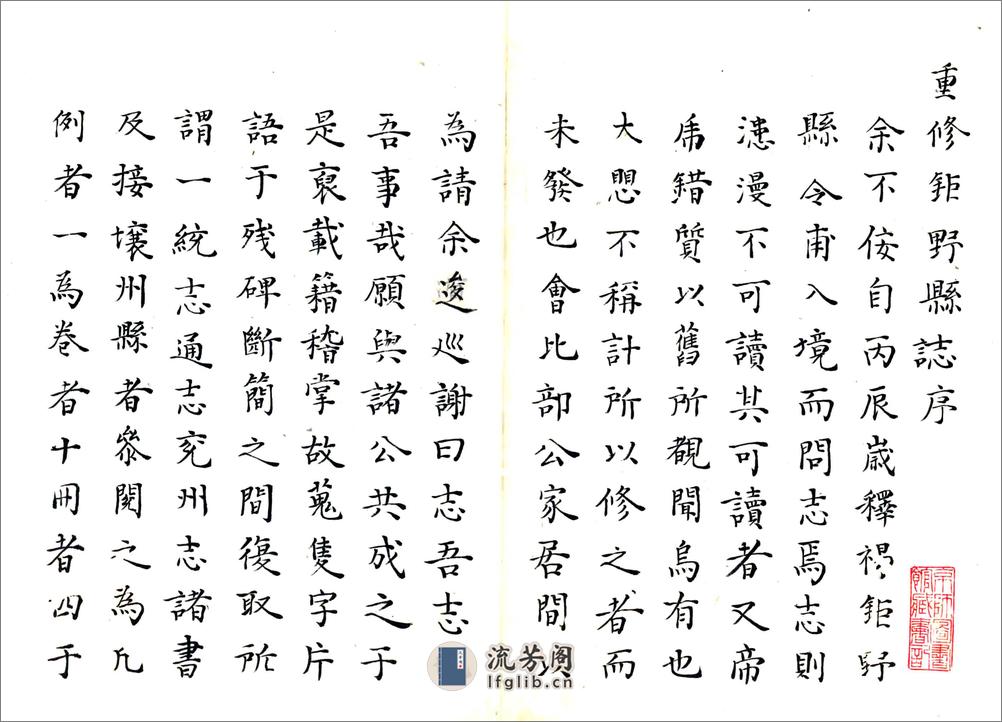 重修鉅野縣誌序
余不佞自丙辰歲釋褐鉅野
縣令甫入境而問志焉志則
漶漫不可讀其可讀者又帝
乕錯質以舊所覩聞烏有也
大愳不稱計所以修之者而
未發也會比部公家居間
為請余逡巡謝曰志吾志
吾事哉願與諸公共成之于
是裒載籍稽掌故蒐隻字片
語于残碑斷簡之間復取所
謂一統志通志兗州志諸書
及接壤州縣者叅閱之為凡
例者一為卷者十冊者四于
京師圖書
館藏書記
流芳阁
lfglib.cn